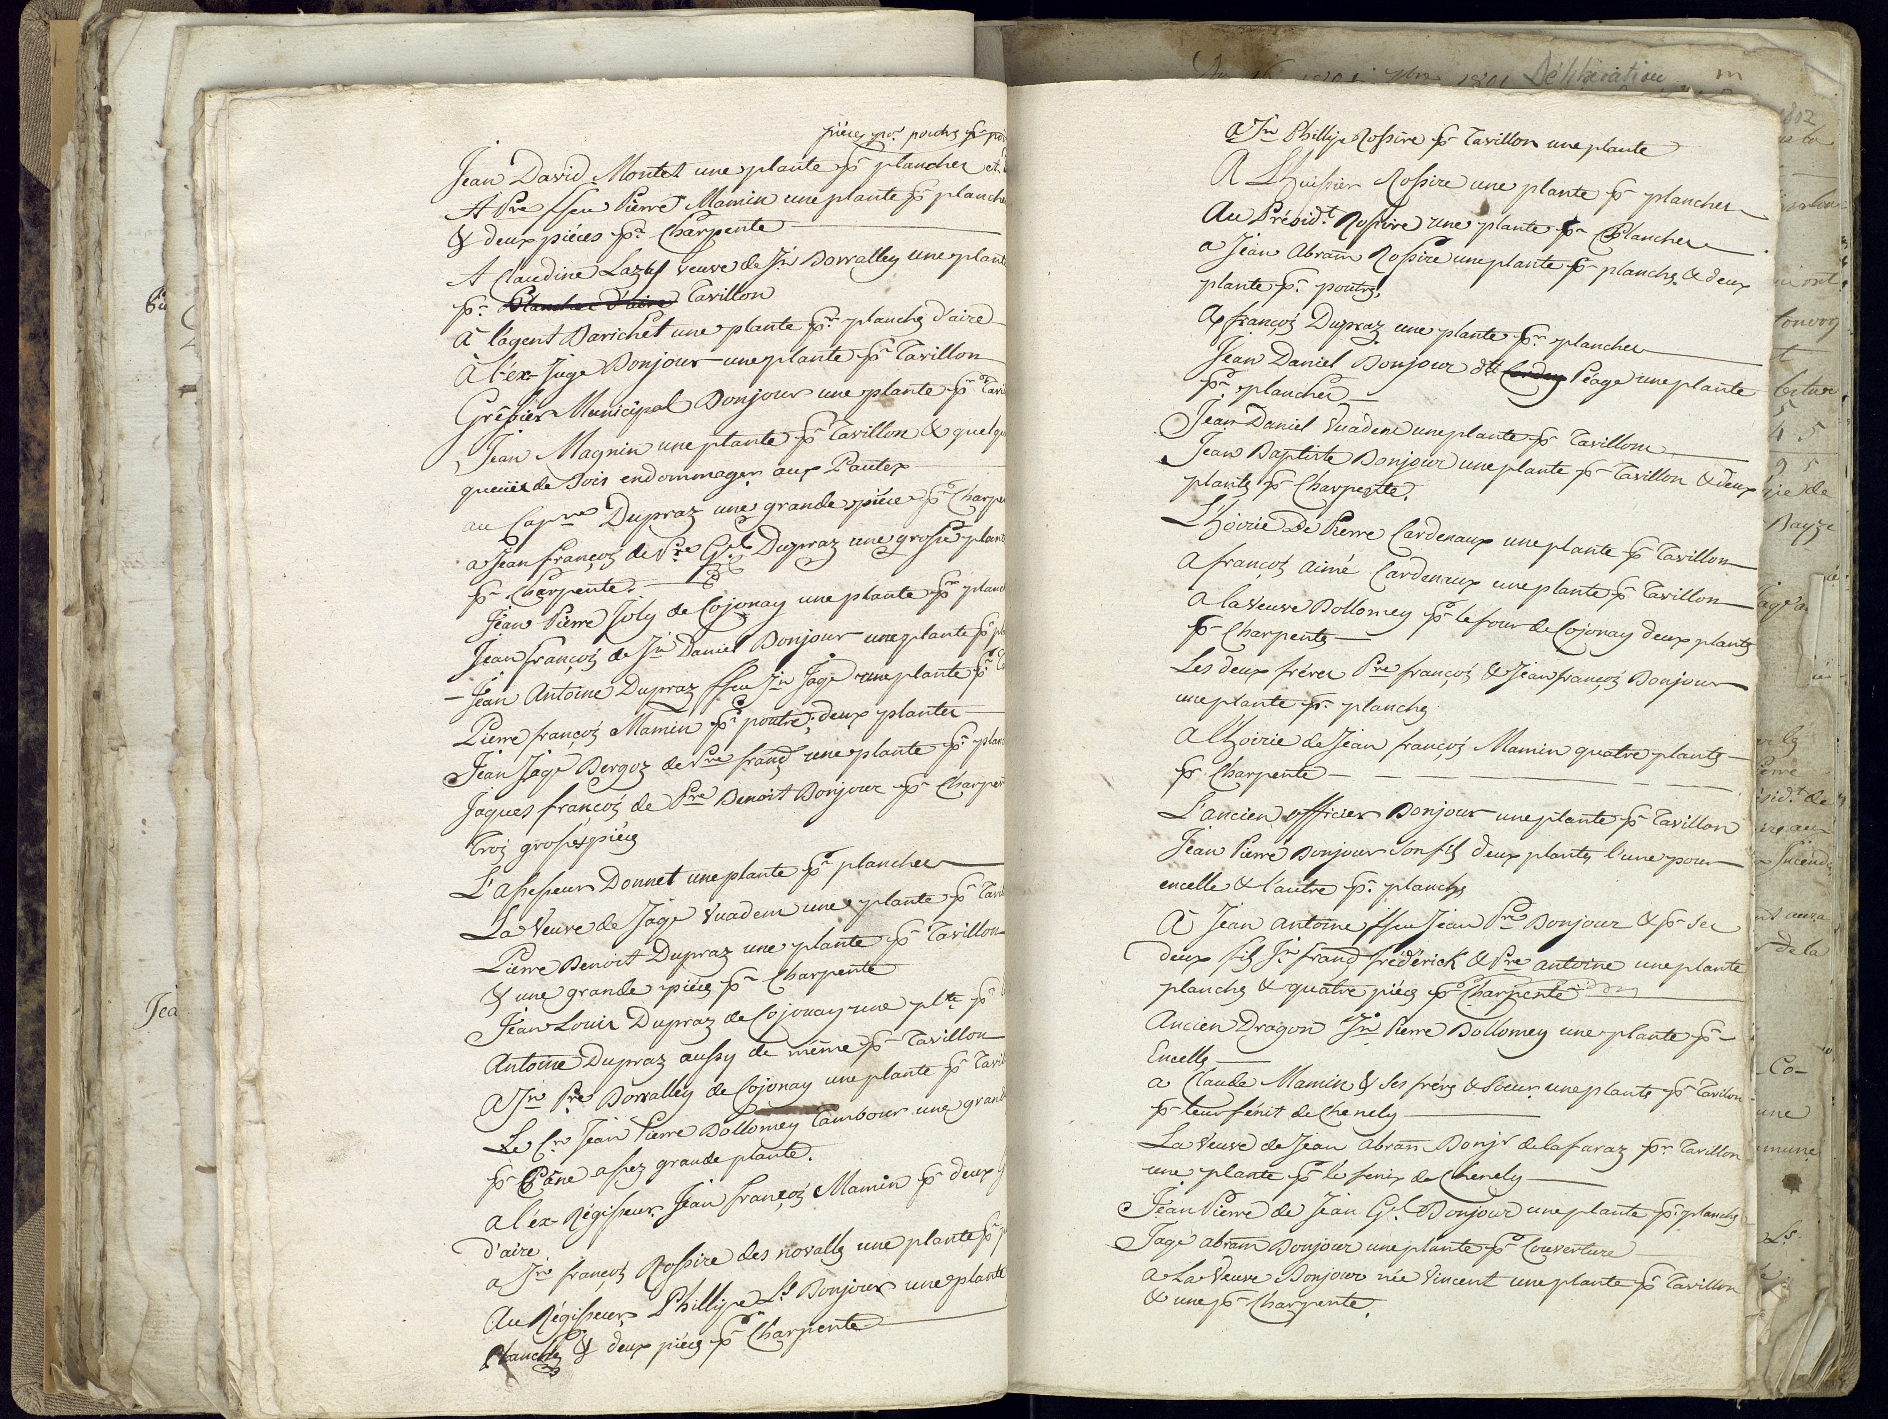 pièces pr. poutres pr.
Jean David Montet une plante pr plancher et
A Pre ffeu Pierre Mamin une plante pr planche
& deux piéces pr. Charpente
A Claudine Lazey veuve de Jn Dorvalley une plante
pr. Plancher d'aire Tavillon
à l'agent Barichet une plante pr planchs d'aire
à l'ex-Juge Bonjour une plante pr Tavillon
Gréfier Municipal Bonjour une plante pr Tavi
Jean Magnin une plante pr Tavillon & quelq
queües de Bois endommager aux Pautex
au Capne Dupraz une grande piéce pr Charpen
a Jean françois de Pre Gel Dupraz une grosse plan
pr. Charpente.
Jean Pierre Joly de Cojonay une plante pr planc
Jean françois de Jn Daniel Bonjour une plante pr pl
Jean Antoine Dupraz ffeu Jn Jaqe une plante pr
Pierre françois Mamin pr poutre, deux plantes
Jean Jaqe Bergoz de Pre franç une plante pr plan
Jaques françois de Pre Benoit Bonjour pr Charpen
trois groses piéces
L'assesseur Donnet une plante pr plancher
La Veuve de Jaqe Vuadens une plante pr Tavi
Pierre Benoit Dupraz une plante pr Tavillon
& une grande piéce pr Charpente
Jean Louis Dupraz de Cojonay une plte pr
Antoine Dupraz aussy de même pr Tavillon
a Jn Pre Dorvalley de Cojonay une plante pr Tavil
Le Cn Jean Pierre Dollomey Tambour une grand
pr Cône assez grande plante.
a l'ex-Régisseur Jean françois Mamin pr deux
d'aire
a Jn françois Rossire des novalls une plante pr p
Au Régisseur Phillipe Ls Bonjour une plante
planches & deux piéces pr Charpente
Délibération
a Jn Phillipe Rossire pr Tavillon une plante
A L'huissier Rossire une plante pr plancher
Au Présidt Rossire une plante pr Plancher
a Jean Abram Rossire une plante pr planchs & deux
plante pr. poutres,
a françois Dupraz une plante pr plancher
Jean Daniel Bonjour dt Péage une plante
pr plancher
Jean Daniel Vuadens une plante pr Tavillon
Jean Baptiste Bonjour une plante pr Tavillon & deux
plants pr Charpente.
L'hoirie De Pierre Cardenaux une plante pr Tavillon
A françois aimé Cardenaux une plante pr Tavillon
à la Veuve Dollomey pr le four de Cojonay deux plants
pr Charpente
Les deux fréres Pre françois & Jean françois Bonjour
une plante pr planchs
a l'hoirie de Jean françois Mamin quatre plants
pr Charpente
L'ancien officier Bonjour une plante pr Tavillon
Jean Pierre Bonjour son fils deux plants l'une pour
encelle & l'autre pr. planchs
à Jean antoine ffeu Jean Pre Bonjour & pr ses
deux fils Jn franç frédérick & Pre antoine une plante
planchs & quatre piéces pr Charpente
Ancien Dragon Jn Pierre Dollomey une plante pr
Encelle
a Claude Mamin & ses fréres & soeur une plante pr Tavillon
pr leur fénit de Chenely
La Veuve de Jean abram Bonjr de la faraz pr Tavillon
une plante pr le fenix de Chenely
Jean Pierre de Jean Gl Bonjour une plante pr planchs
Jaqe abram Bonjour une plante pr Couverture
a La Veuve Bonjour née Vincent une plante pr Tavillon
& une pr Charpente.